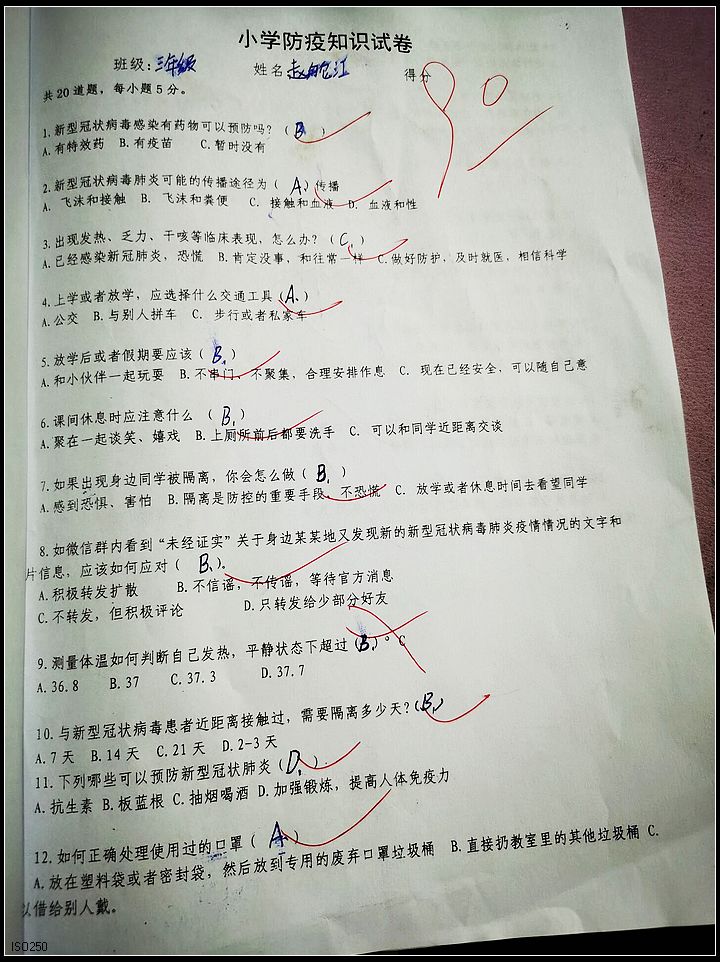 小学防疫知识试卷
班级:三年级 姓名 赵 江 得分 90
共20道题，每小题5分。
1.新型冠状病毒感染有药物可以预防吗？（B）
A.有特效药 B.有疫苗 C.暂时没有
2.新型冠状病毒肺炎可能的传播途径为（A）传播
A. 飞沫和接触 B. 飞沫和粪便 C. 接触和血液 D. 血液和性
3.出现发热、乏力、干咳等临床表现，怎么办？（C）
A.已经感染新冠肺炎，恐慌 B.肯定没事，和往常一样 C.做好防护，及时就医，相信科学
4.上学或者放学，应选择什么交通工具（A）
A.公交 B.与别人拼车 C. 步行或者私家车
5.放学后或者假期要应该（B）
A.和小伙伴一起玩耍 B.不串门、不聚集，合理安排作息 C. 现在已经安全，可以随自己意
6.课间休息时应注意什么 （B）
A.聚在一起谈笑、嬉戏 B.上厕所前后都要洗手 C. 可以和同学近距离交谈
7.如果出现身边同学被隔离，你会怎么做（B）
A.感到恐惧、害怕 B.隔离是防控的重要手段，不恐慌 C. 放学或者休息时间去看望同学
8.如微信群内看到“未经证实”关于身边某某地又发现新的新型冠状病毒肺炎疫情情况的文字和
片信息，应该如何应对（B）。
A.积极转发扩散 B.不信谣，不传谣，等待官方消息
C.不转发，但积极评论 D.只转发给少部分好友
9.测量体温如何判断自己发热，平静状态下超过（B）°C
A.36.8 B.37 C.37.3 D.37.7
10.与新型冠状病毒患者近距离接触过，需要隔离多少天？（B）
A.7天 B.14天 C.21天 D.2-3天
11.下列哪些可以预防新型冠状肺炎（D）.
A.抗生素 B.板蓝根 C.抽烟喝酒 D.加强锻炼，提高人体免疫力
12.如何正确处理使用过的口罩（A）
A.放在塑料袋或者密封袋，然后放到专用的废弃口罩垃圾桶 B.直接扔教室里的其他垃圾桶 C.
以借给别人戴。
ISO250